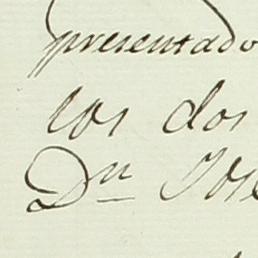 presentado
los dos
Dn José